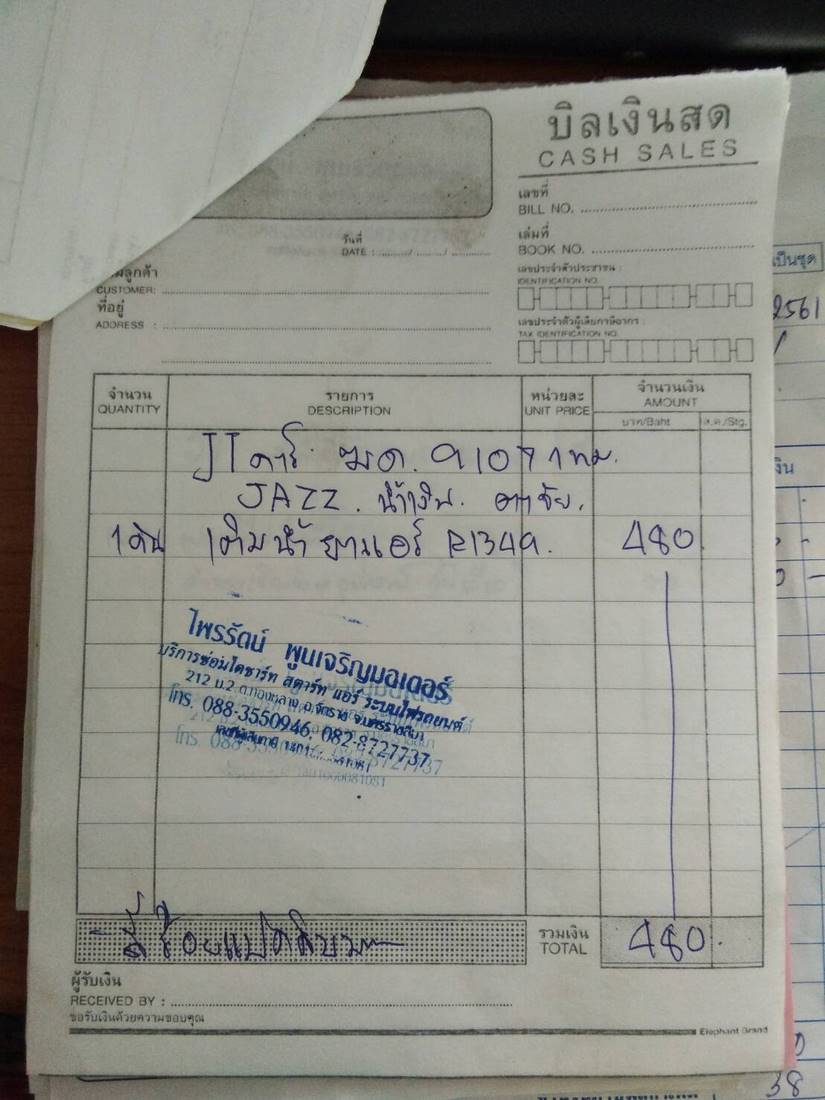 บิลเงินสด
CASH SALES
เลขที่
BILL NO.
วันที่
DATE : ......../......../........
เล่มที่
BOOK NO.
ลูกค้า
CUSTOMER:
เลขประจำตัวประชาชน :
IDENTIFICATION NO.
ที่อยู่
ADDRESS :
เลขประจำตัวผู้เสียภาษีอากร :
TAX IDENTIFICATION NO.
จำนวน
QUANTITY
รายการ
DESCRIPTION
หน่วยละ
UNIT PRICE
จำนวนเงิน
AMOUNT
บาท/Baht
ส.ต./Stg.
JT คาร์
JAZZ. น้ำเงิน.
1 คัน เติมน้ำยาแอร์ R134a. 480
ไพรรัตน์ พูนเจริญมอเตอร์
บริการซ่อมไดชาร์ท สตาร์ท แอร์ ระบบไฟรถยนต์
212 ม.2 ต.ทองหลาง อ.จักราช จ.นครราชสีมา
โทร. 088-3550946, 082-8727737
สี่ร้อยแปดสิบบาท
รวมเงิน
TOTAL
480.
ผู้รับเงิน
RECEIVED BY :
ขอรับเงินด้วยความขอบคุณ
Elephant Brand
เป็นชุด
2561
38